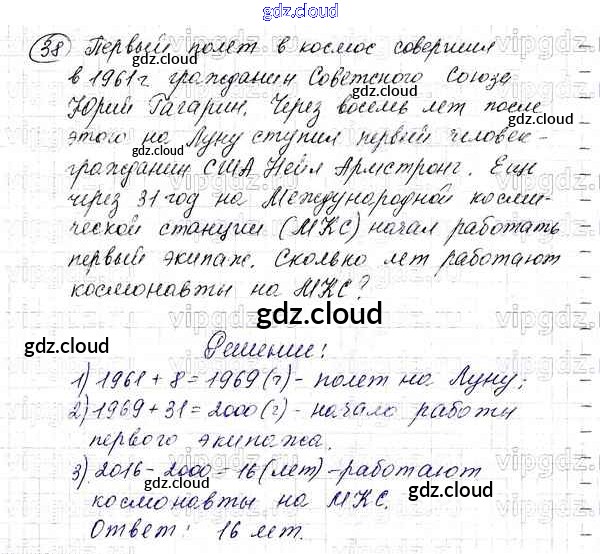 gdz.cloud
gdz.cloud gdz.cloud
38 Первый полет в космос совершил
в 1961 г гражданин Советского Союза
Юрий Гагарин. Через восемь лет после
этого на Луну ступил первый человек-
гражданин США Нейл Армстронг. Еще
через 31 год на Международной косми-
ческой станции (МКС) начал работать
первый экипаж. Сколько лет работают
космонавты на МКС?
gdz.cloud
gdz.cloud
gdz.cloud
Решение:
1) 1961 + 8 = 1969 (г) - полет на Луну;
2) 1969 + 31 = 2000 (г) - начало работы
первого экипажа.
3) 2016 - 2000 = 16 (лет) - работают
космонавты на МКС.
Ответ: 16 лет.
gdz.cloud
gdz.cloud
gdz.cloud
gdz.cloud